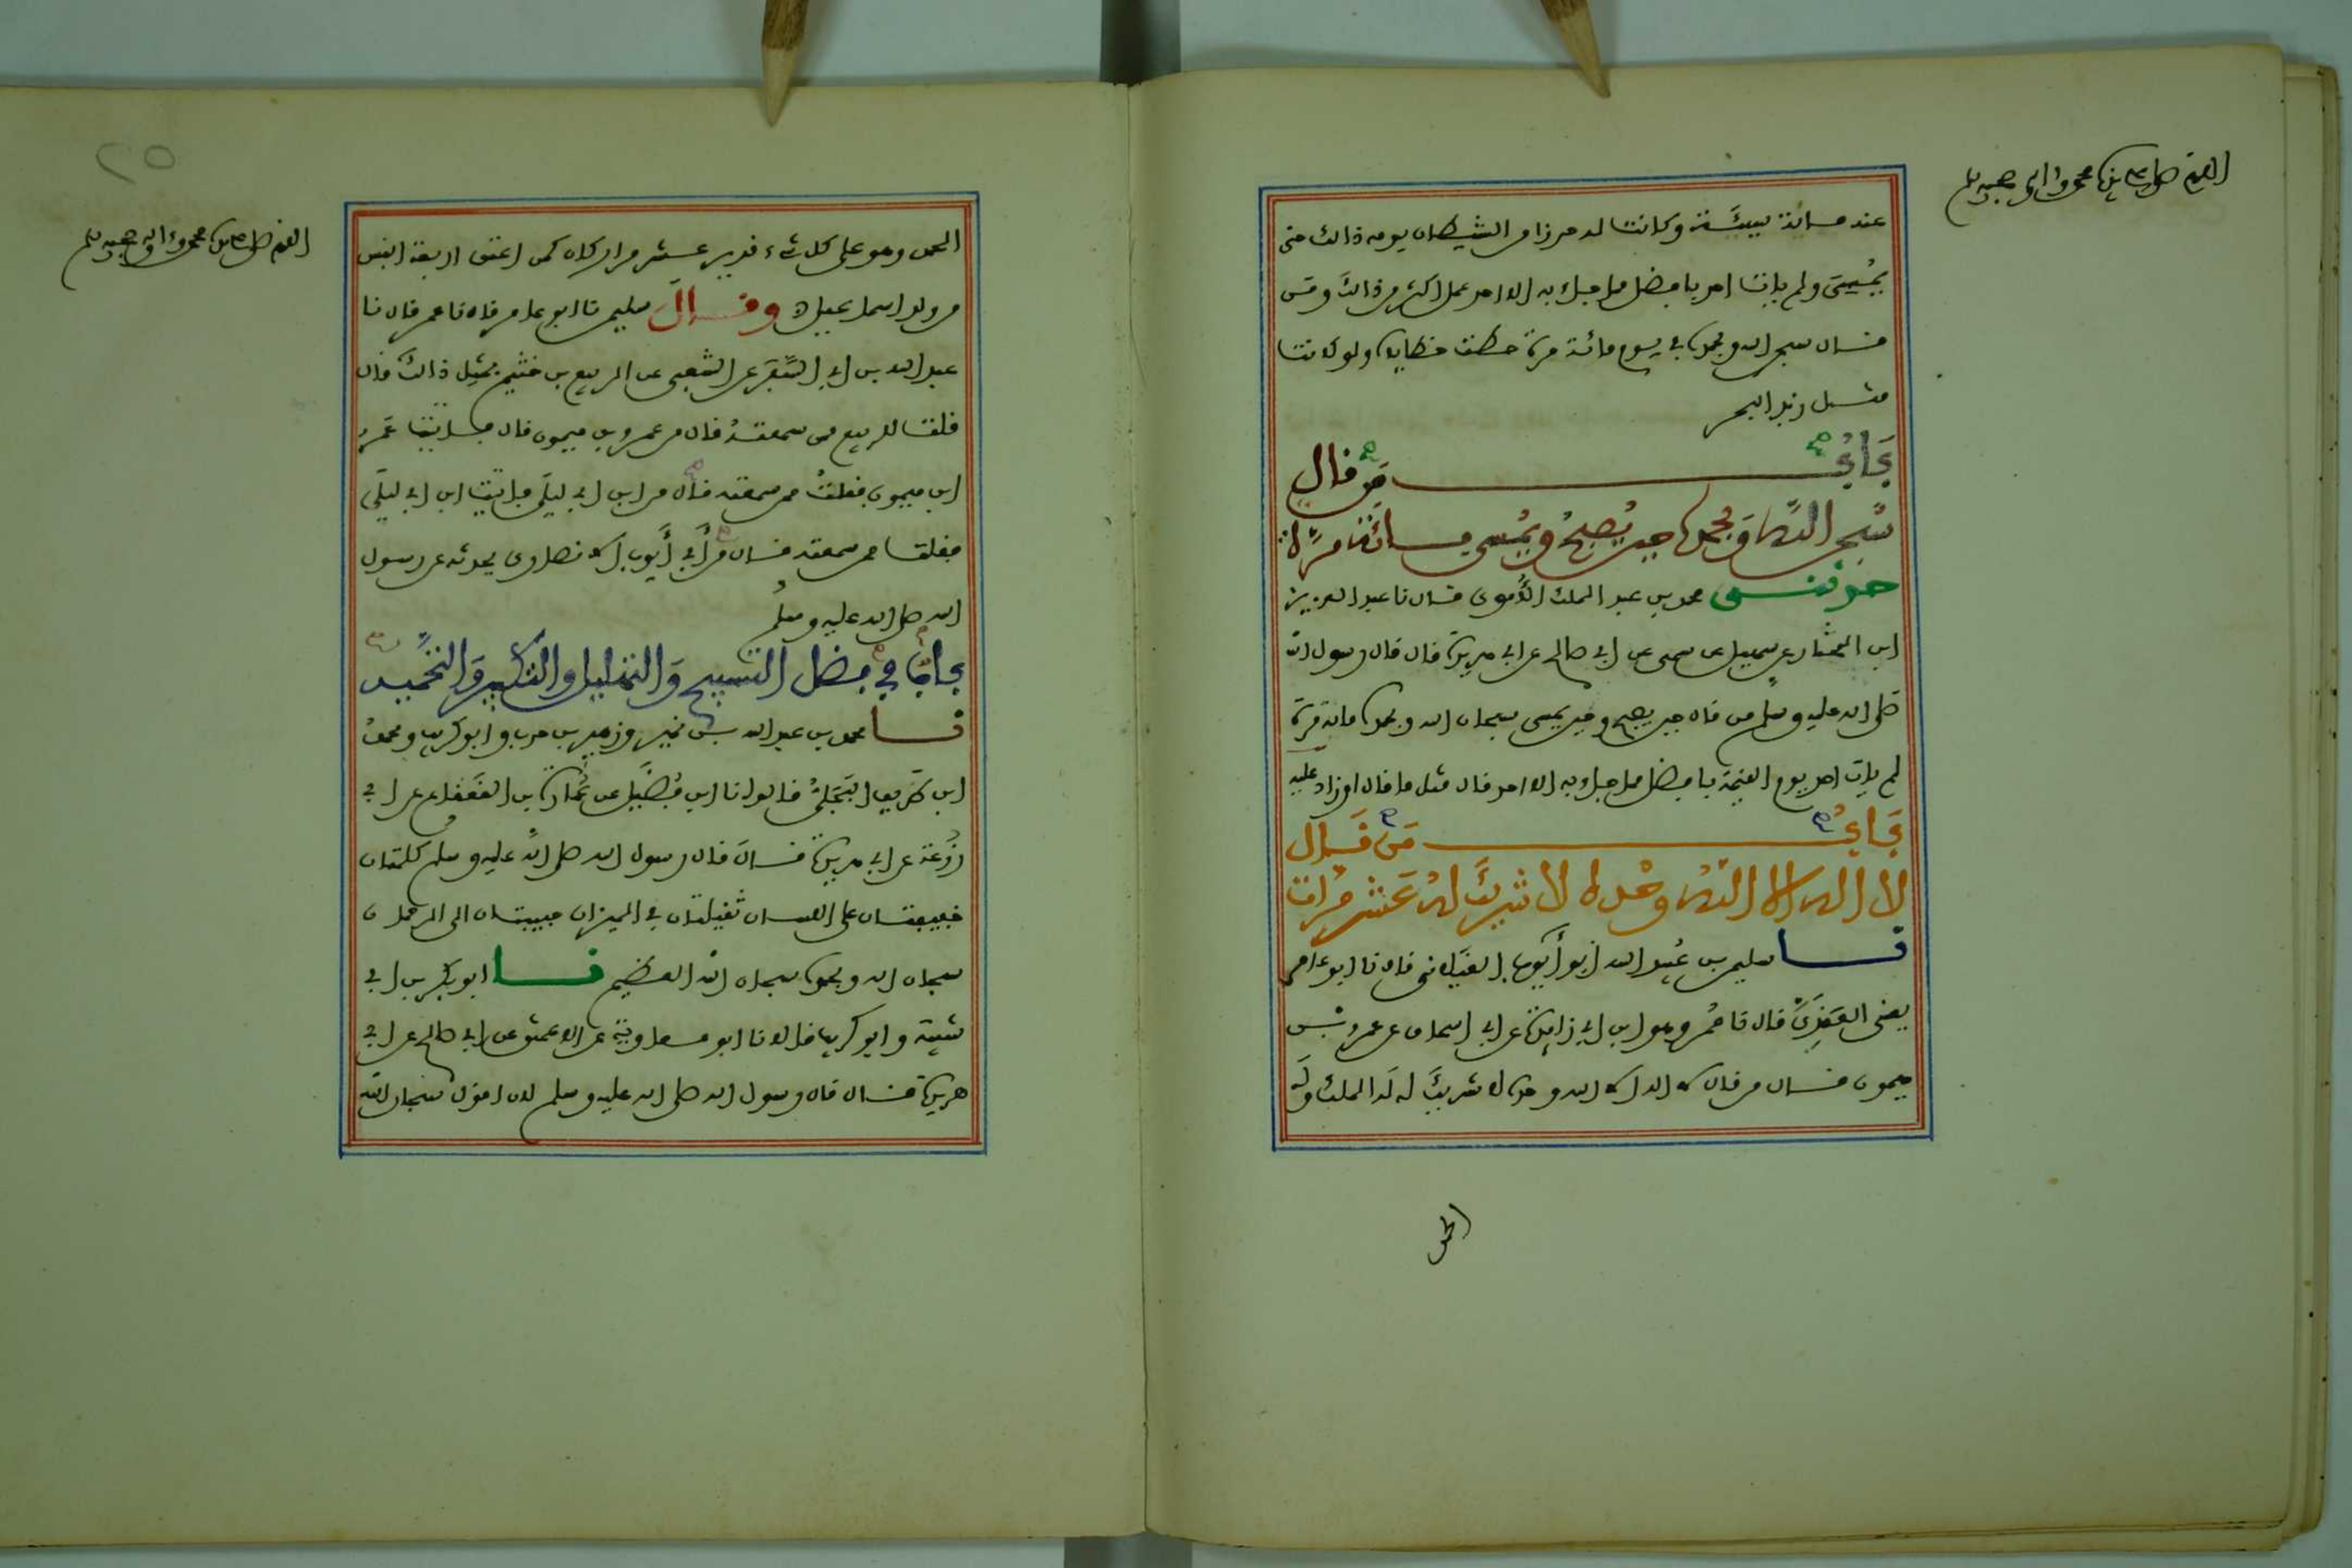 اللهم صل على سيدنا محمد وآله وصحبه وسلم
عنه مائة سيئة وكانت له حرزا من الشيطان يومه ذالك حتى
يمسي ولم يات احد بافضل مما جاء به الا احد عمل اكثر من ذالك ومن
قال سبحن الله وبحمده في يوم مائة مرة حطت خطاياه ولو كانت
مثل زبد البحر
باب من قال
سبحن الله وبحمده حين يصبح ويمسي مائة مرة
حدثني محمد بن عبد الملك الأموي قال نا عبد العزيز
ابن المختار عن سهيل عن سمي عن ابي صالح عن ابي هريرة قال قال رسول الله
صلى الله عليه وسلم من قال حين يصبح وحين يمسي سبحان الله وبحمده مائة مرة
لم يات احد يوم القيمة بافضل مما جاء به الا احد قال مثل ما قال او زاد عليه
باب من قال
لا اله الا الله وحده لا شريك له عشر مرات
نا سليمن بن عبيد الله ابو أيوب الغيلاني قال نا ابو عامر
يعني العقدي قال نا عمر وهو ابن ابي زايدة عن ابي اسحاق عن عمرو بن
ميمون قال من قال لا اله الا الله وحده لا شريك له له الملك وله
الحمد
٢٥
اللهم صل على سيدنا محمد وآله وصحبه وسلم
الحمد وهو على كل شيء قدير عشر مرار كان كمن اعتق اربعة انفس
من ولد اسماعيل وقال سليمن نا ابو عامر قال نا عمر قال نا
عبد الله بن ابي السفر عن الشعبي عن الربيع بن خثيم بمثل ذالك قال
فقلت للربيع ممن سمعته قال من عمرو بن ميمون قال فاتيت عمرو
ابن ميمون فقلت ممن سمعته قال من ابن ابي ليلى فاتيت ابن ابي ليلى
فقلت ممن سمعته قال من أبي أيوب الانصاري يحدثه عن رسول
الله صلى الله عليه وسلم
باب في فضل التسبيح والتهليل والتكبير والتحميد
نا محمد بن عبد الله بن نمير وزهير بن حرب وابو كريب ومحمد
ابن طريف البجلي قالوا نا ابن فضيل عن عمارة بن القعقاع عن ابي
زرعة عن ابي هريرة قال قال رسول الله صلى الله عليه وسلم كلمتان
خفيفتان على اللسان ثقيلتان في الميزان حبيبتان الى الرحمان
سبحان الله وبحمده سبحان الله العظيم نا ابو بكر بن ابي
شيبة وابو كريب قالا نا ابو معاوية عن الاعمش عن ابي صالح عن ابي
هريرة قال قال رسول الله صلى الله عليه وسلم لان اقول سبحان الله